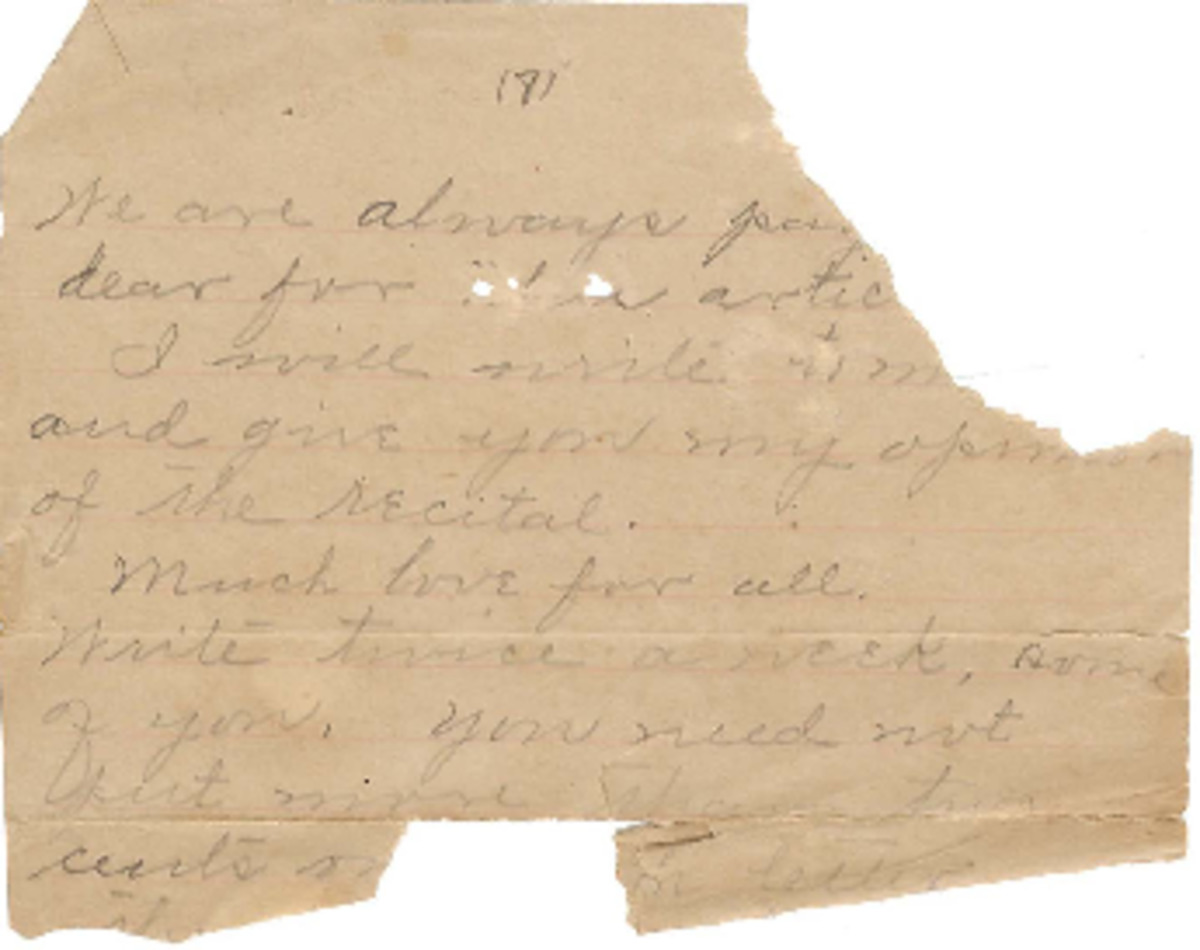 (8)
We are always pay
dear for artic
I will write
and give you my opinion
of the recital.
Much love for all.
Write twice a week, some
of you. You need not
put more than two
cents on letter